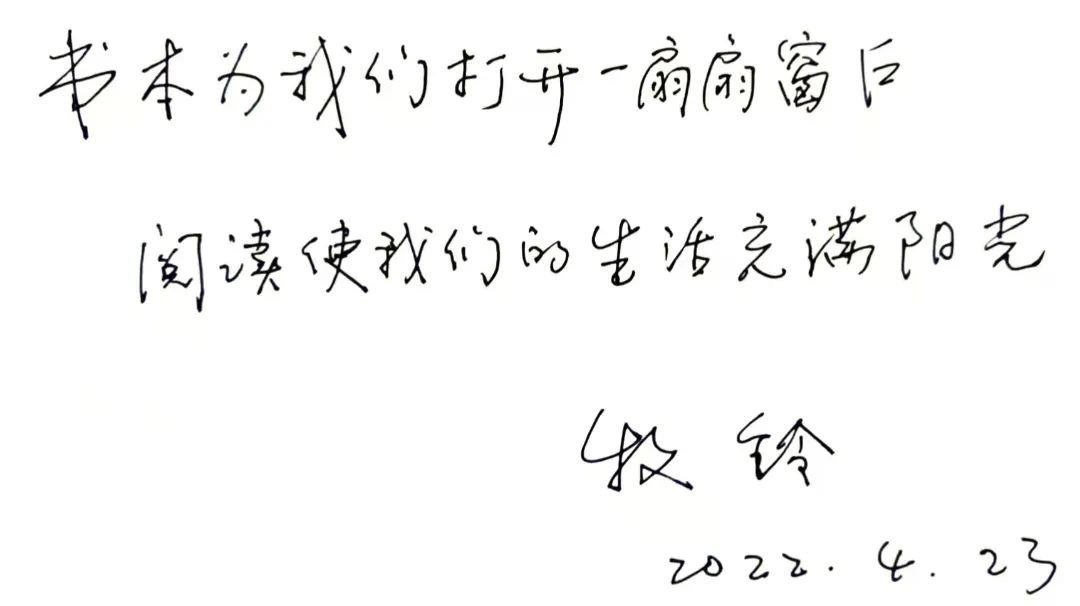 书本为我们打开一扇扇窗口
阅读使我们的生活充满阳光
牧铃
2022.4.23